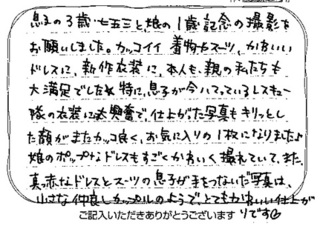 息子の3歳七五三と、娘の1歳記念の撮影を
お願いしました。カッコイイ着物やスーツ、かわいい
ドレスに、新作衣装に、本人も、親の私たちも
大満足でした★特に、息子が今ハマっているレスキュー
隊の衣装に大興奮で、仕上がった写真もキリッとし
た顔がまたカッコ良く、お気に入りの1枚になりました♪
娘のポップなドレスもすごくかわいく撮れていて、また、
真っ赤なドレスとスーツの息子が手をつないだ写真は、
小さな仲良しカップルのようで、とてもかわいい仕上が
ご記入いただきありがとうございます りです☺